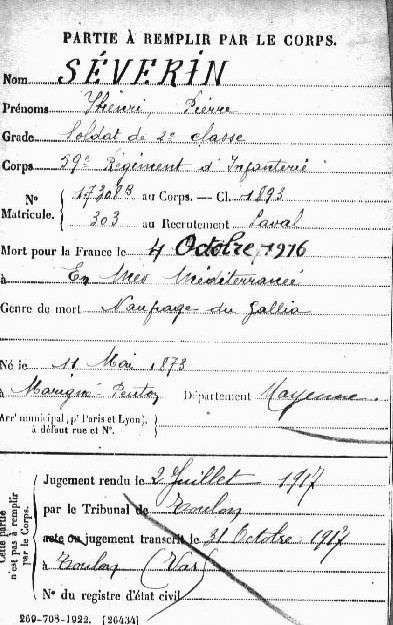 PARTIE À REMPLIR PAR LE CORPS.
Nom SÉVERIN
Prénoms Henri, Pierre
Grade Soldat de 2e classe
Corps 59e Régiment d'Infanterie
N° 17308B au Corps. — Cl. 1893
Matricule. 303 au Recrutement Laval
Mort pour la France le 4 Octobre 1916
à En Mer Méditerranée
Genre de mort Naufrage du Gallia
Né le 11 Mai 1873
à Marigné Peuton Département Mayenne.
Arrt municipal (pr Paris et Lyon),
à défaut rue et N°.
Cette partie
n'est pas à remplir
par le Corps.
Jugement rendu le 2 Juillet 1917
par le Tribunal de Toulon
acte ou jugement transcrit le 31 Octobre 1917
à Toulon (Var)
N° du registre d'état civil
269-708-1922. [26434]